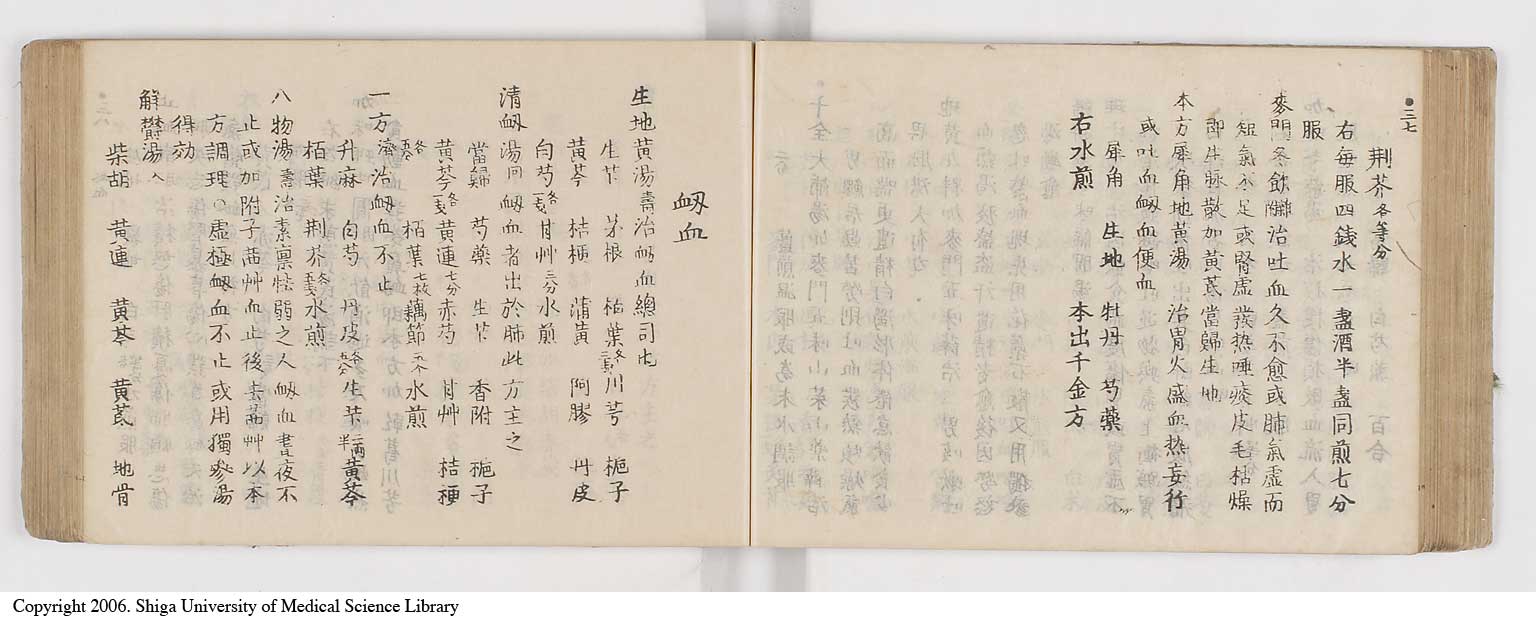 二七
荆芥各等分
右每服四錢水一盞酒半盞同煎七分
服
麥門冬飲 治吐血久不愈或肺氣虛而
短氣不足或腎虛發热唾痰皮毛枯燥
即生脉散加黃芪當歸生地
本方犀角地黃湯 治胃火盛血热妄行
或吐血衂血便血
犀角 生地 牡丹 芍藥
右水煎 本出千金方
衂血
生地黃湯 壽 治衂血總司也
生芐 茅根 栢葉各二戔 川芎 梔子
黃芩 桔梗 蒲黃 阿膠 丹皮
白芍各一戔 甘艸三分 水煎
清衂湯 回 衂血者出於肺此方主之
當歸 芍藥 生芐 香附 梔子
黃芩各一戔 黃連七分 赤芍 甘艸 桔梗
各五分 栢葉七枚 藕節 水煎
一方 濟 治衂血不止
升麻 白芍 丹皮 生芐 黃芩
栢葉 荆芥 水煎
八物湯 壽 治素禀怯弱之人衂血晝夜不
止或加附子萵艸血止後去萵艸以本
方調理 虛極衂血不止或用獨參湯
得効
解欝湯
柴胡 黃連 黃芩 黃芪 地骨
Copyright 2006. Shiga University of Medical Science Library